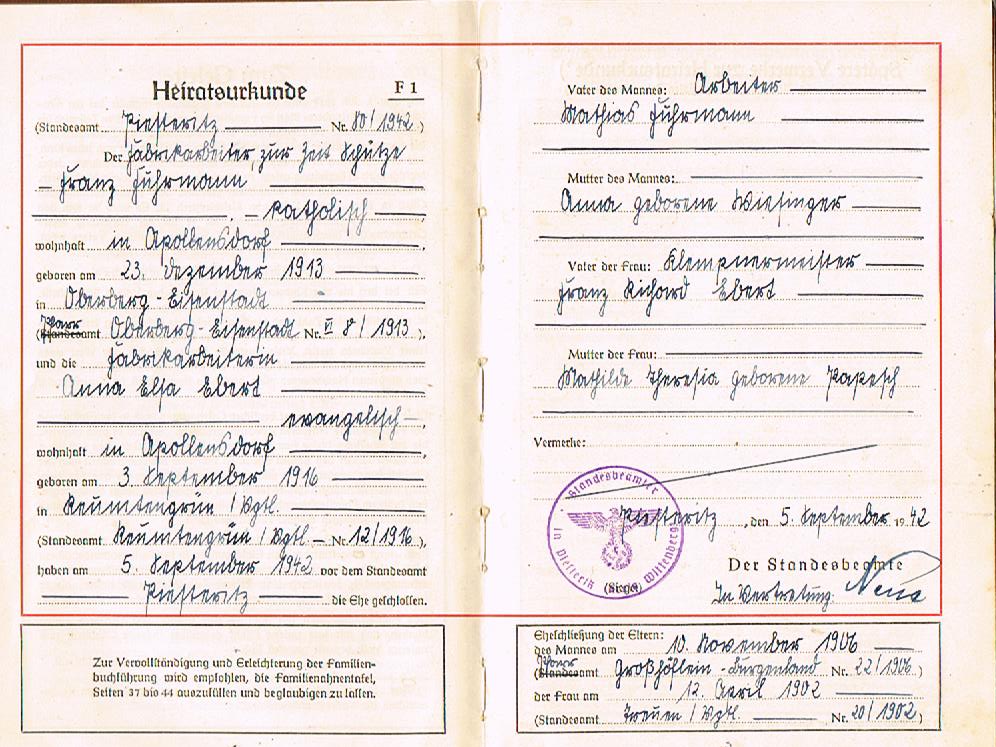 Heiratsurkunde F 1
(Standesamt Piesteritz Nr. 80/1942)
Der Fabrikarbeiter, zur Zeit Schütze
Franz Fuhrmann
, katholisch,
wohnhaft in Apollensdorf,
geboren am 23. Dezember 1913
in Oberberg-Eisenstadt
(Pfarramt Oberberg-Eisenstadt Nr. VI 8/1913),
und die Fabrikarbeiterin
Anna Elsa Ebert
evangelisch,
wohnhaft in Apollensdorf,
geboren am 3. September 1916
in Reumtengrün / Vgtl.
(Standesamt Reumtengrün / Vgtl. Nr. 12/1916),
haben am 5. September 1942 vor dem Standesamt
Piesteritz die Ehe geschlossen.
Zur Vervollständigung und Erleichterung der Familien-
buchführung wird empfohlen, die Familienahnentafel,
Seiten 37 bis 44 auszufüllen und beglaubigen zu lassen.
Vater des Mannes: Arbeiter
Mathias Fuhrmann
Mutter des Mannes:
Anna geborene Wiesinger
Vater der Frau: Klempnermeister
Franz Richard Ebert
Mutter der Frau:
Mathilde Theresia geborene Papesch
Vermerke:
Standesbeamter
in Piesteritz Wittenberg
Piesteritz, den 5. September 1942
(Siegel)
Der Standesbeamte
In Vertretung:
Eheschließung der Eltern:
des Mannes am 10. November 1906
(Pfarramt Großhöflein - Burgenland Nr. 22/1906)
der Frau am 12. April 1902
(Standesamt Treuen / Vgtl. Nr. 20/1902)